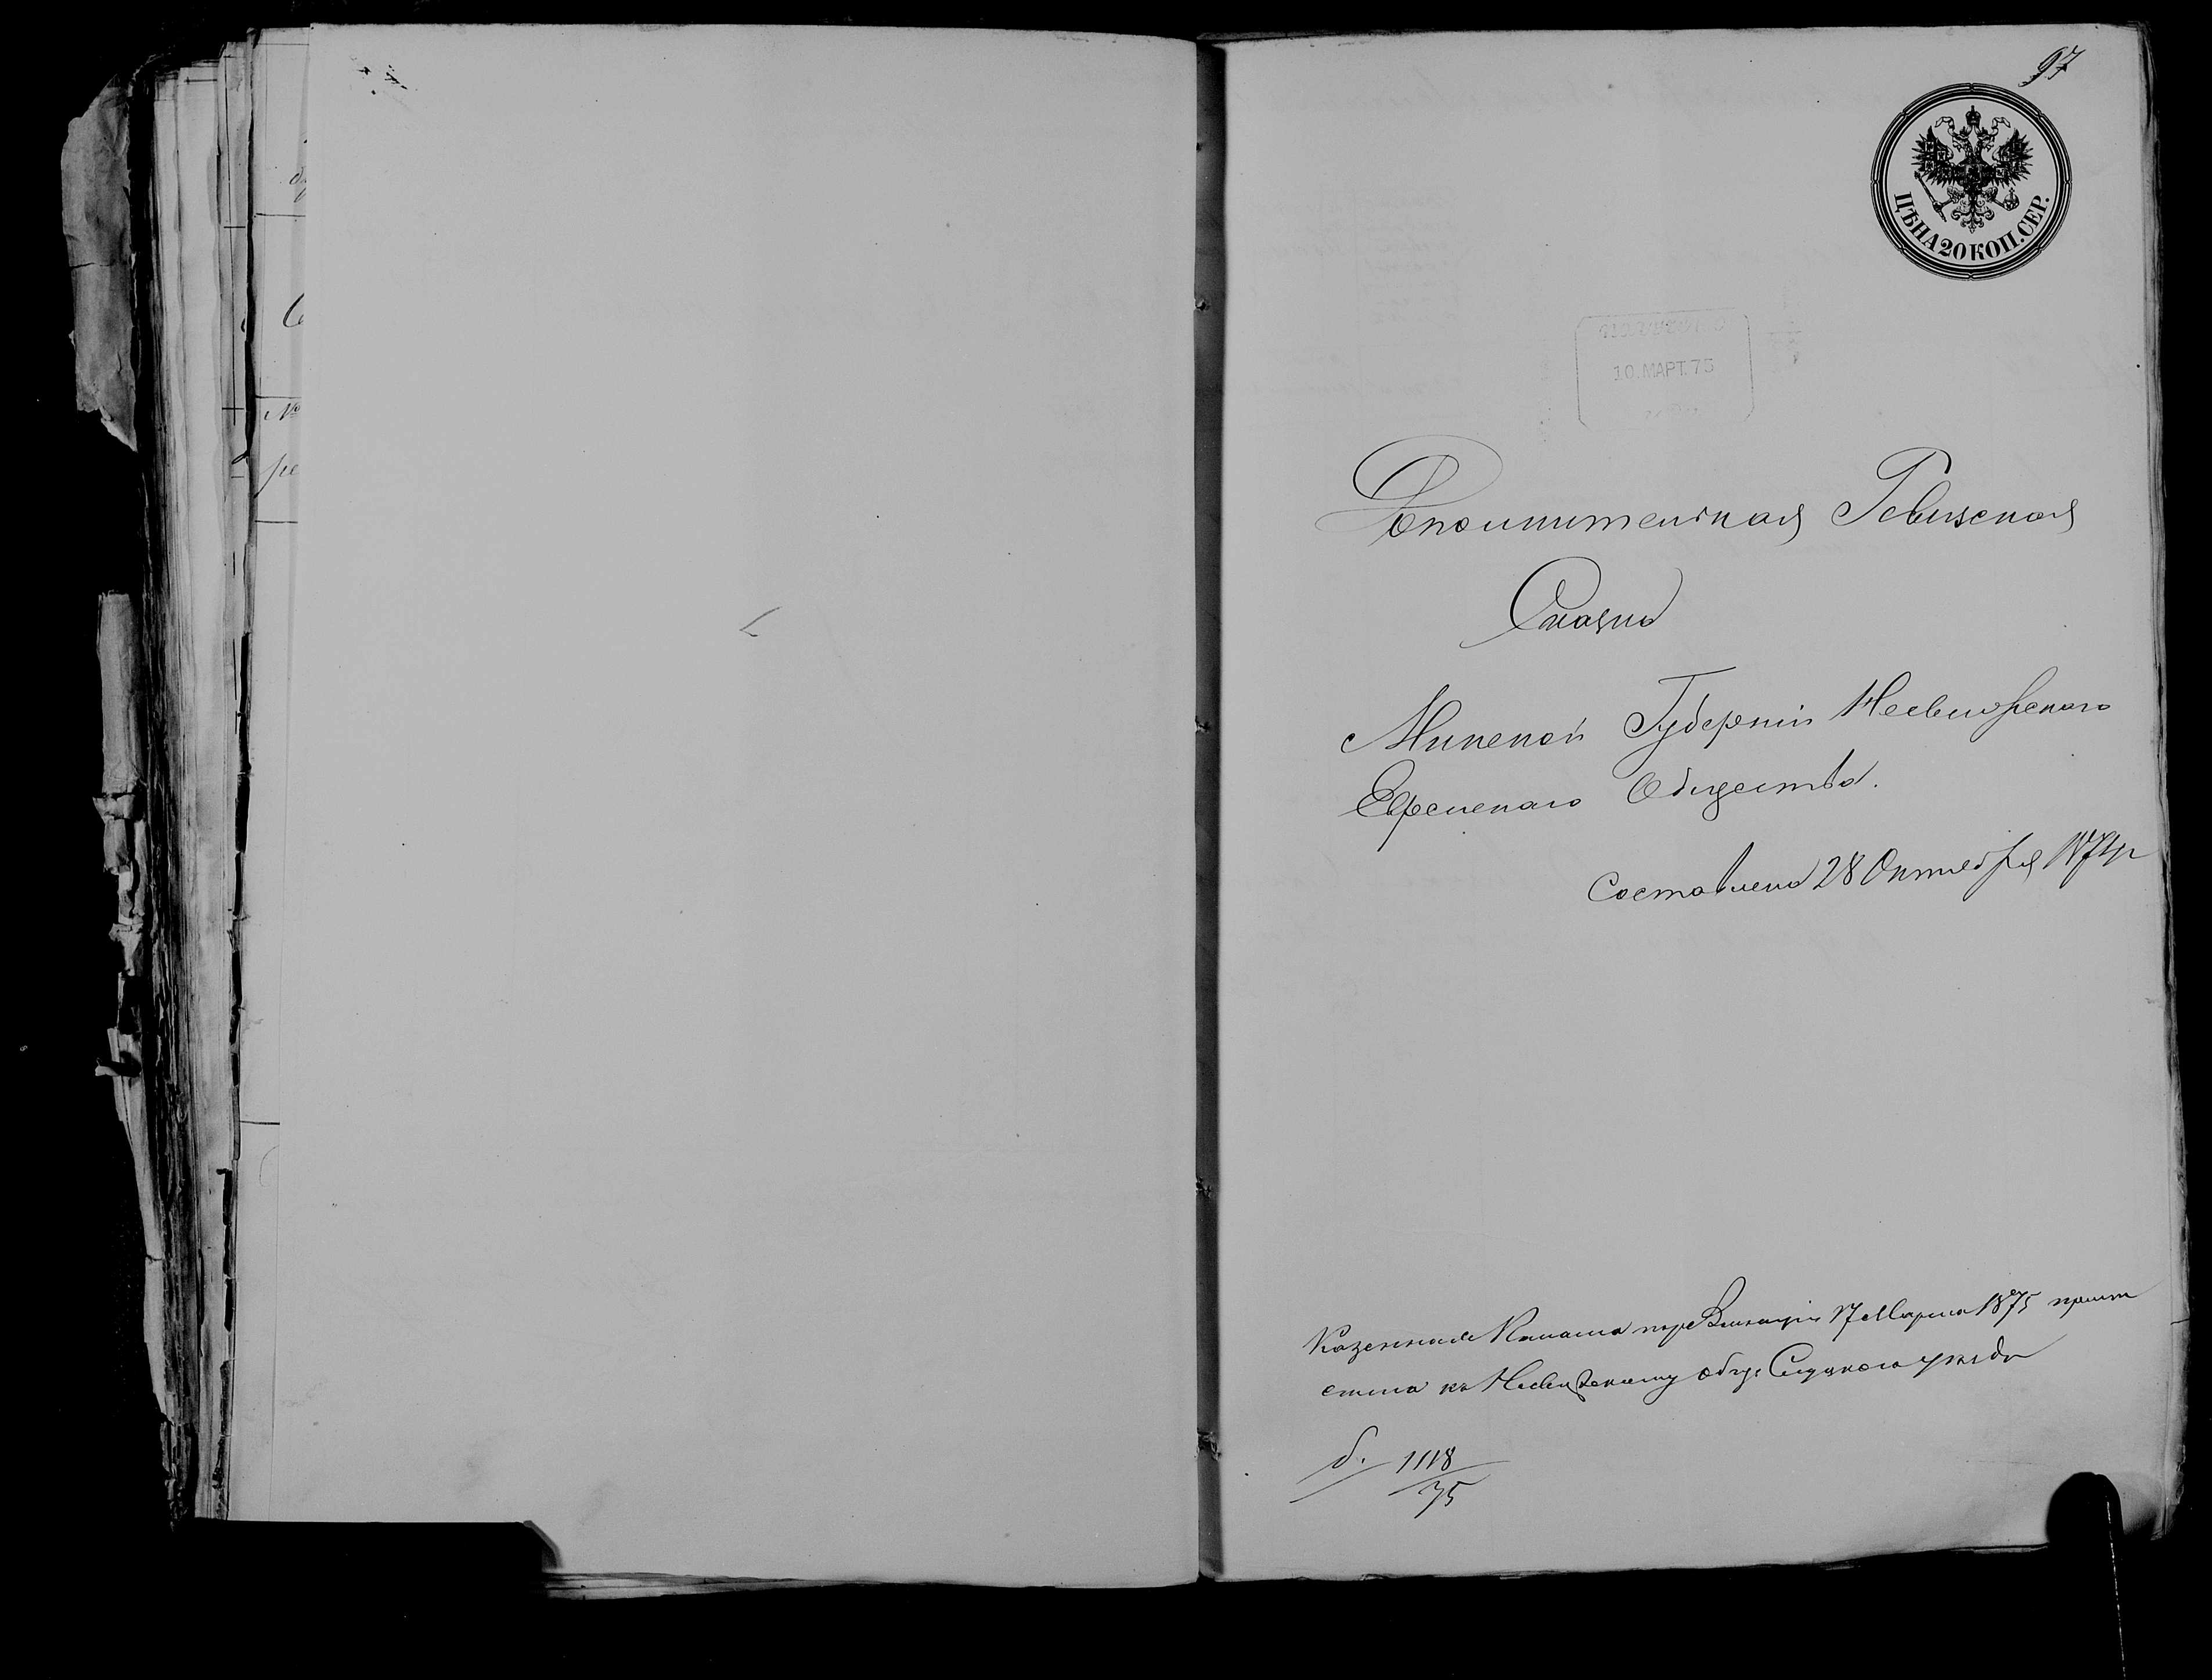 97
ЦѢНА 20 КОП. СЕР.
10.МАРТ.75
Дополнительная Ревизская
Сказка
Минской Губерніи Несвижскаго
Еврейскаго Общества.
Составлена 28 Октября 1874 г
Казенная Палата 17 Марта 1875
къ Несвижскому общ. Слуцкаго уѣзда
1118
75